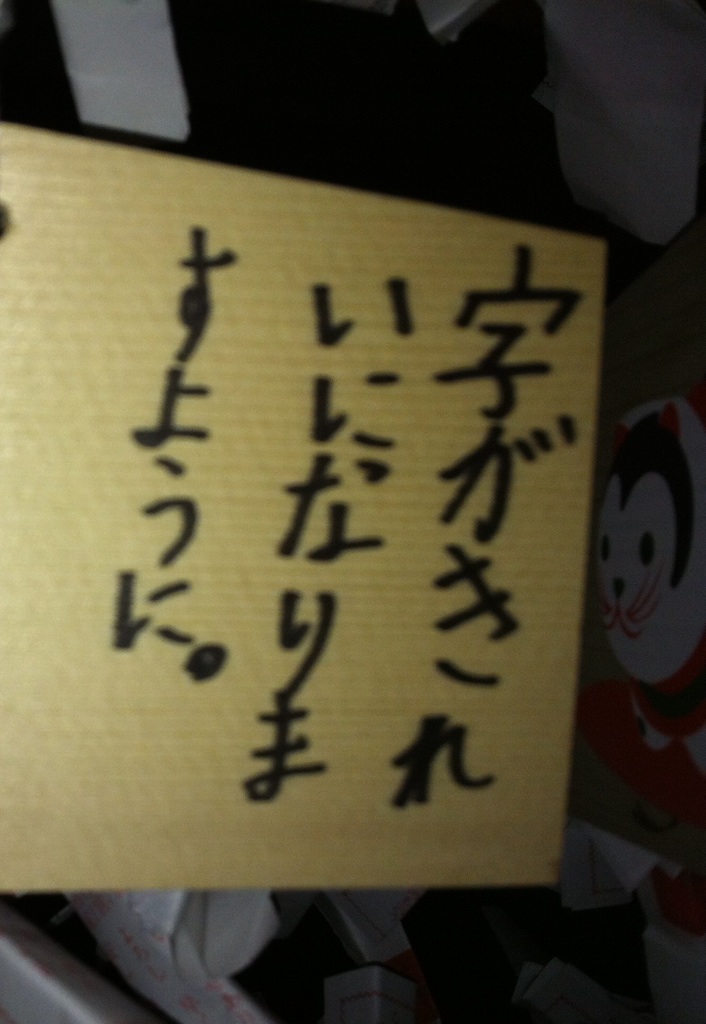 字がきれ
いになりま
すように。